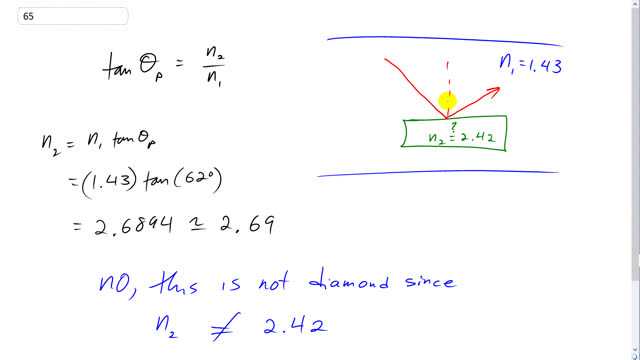 65
tan θp = n2/n1
n1 = 1.43
?
n2 = 2.42
n2 = n1 tanθp
= (1.43) tan(62°)
= 2.6894 ≃ 2.69
no, this is not diamond since
n2 ≠ 2.42